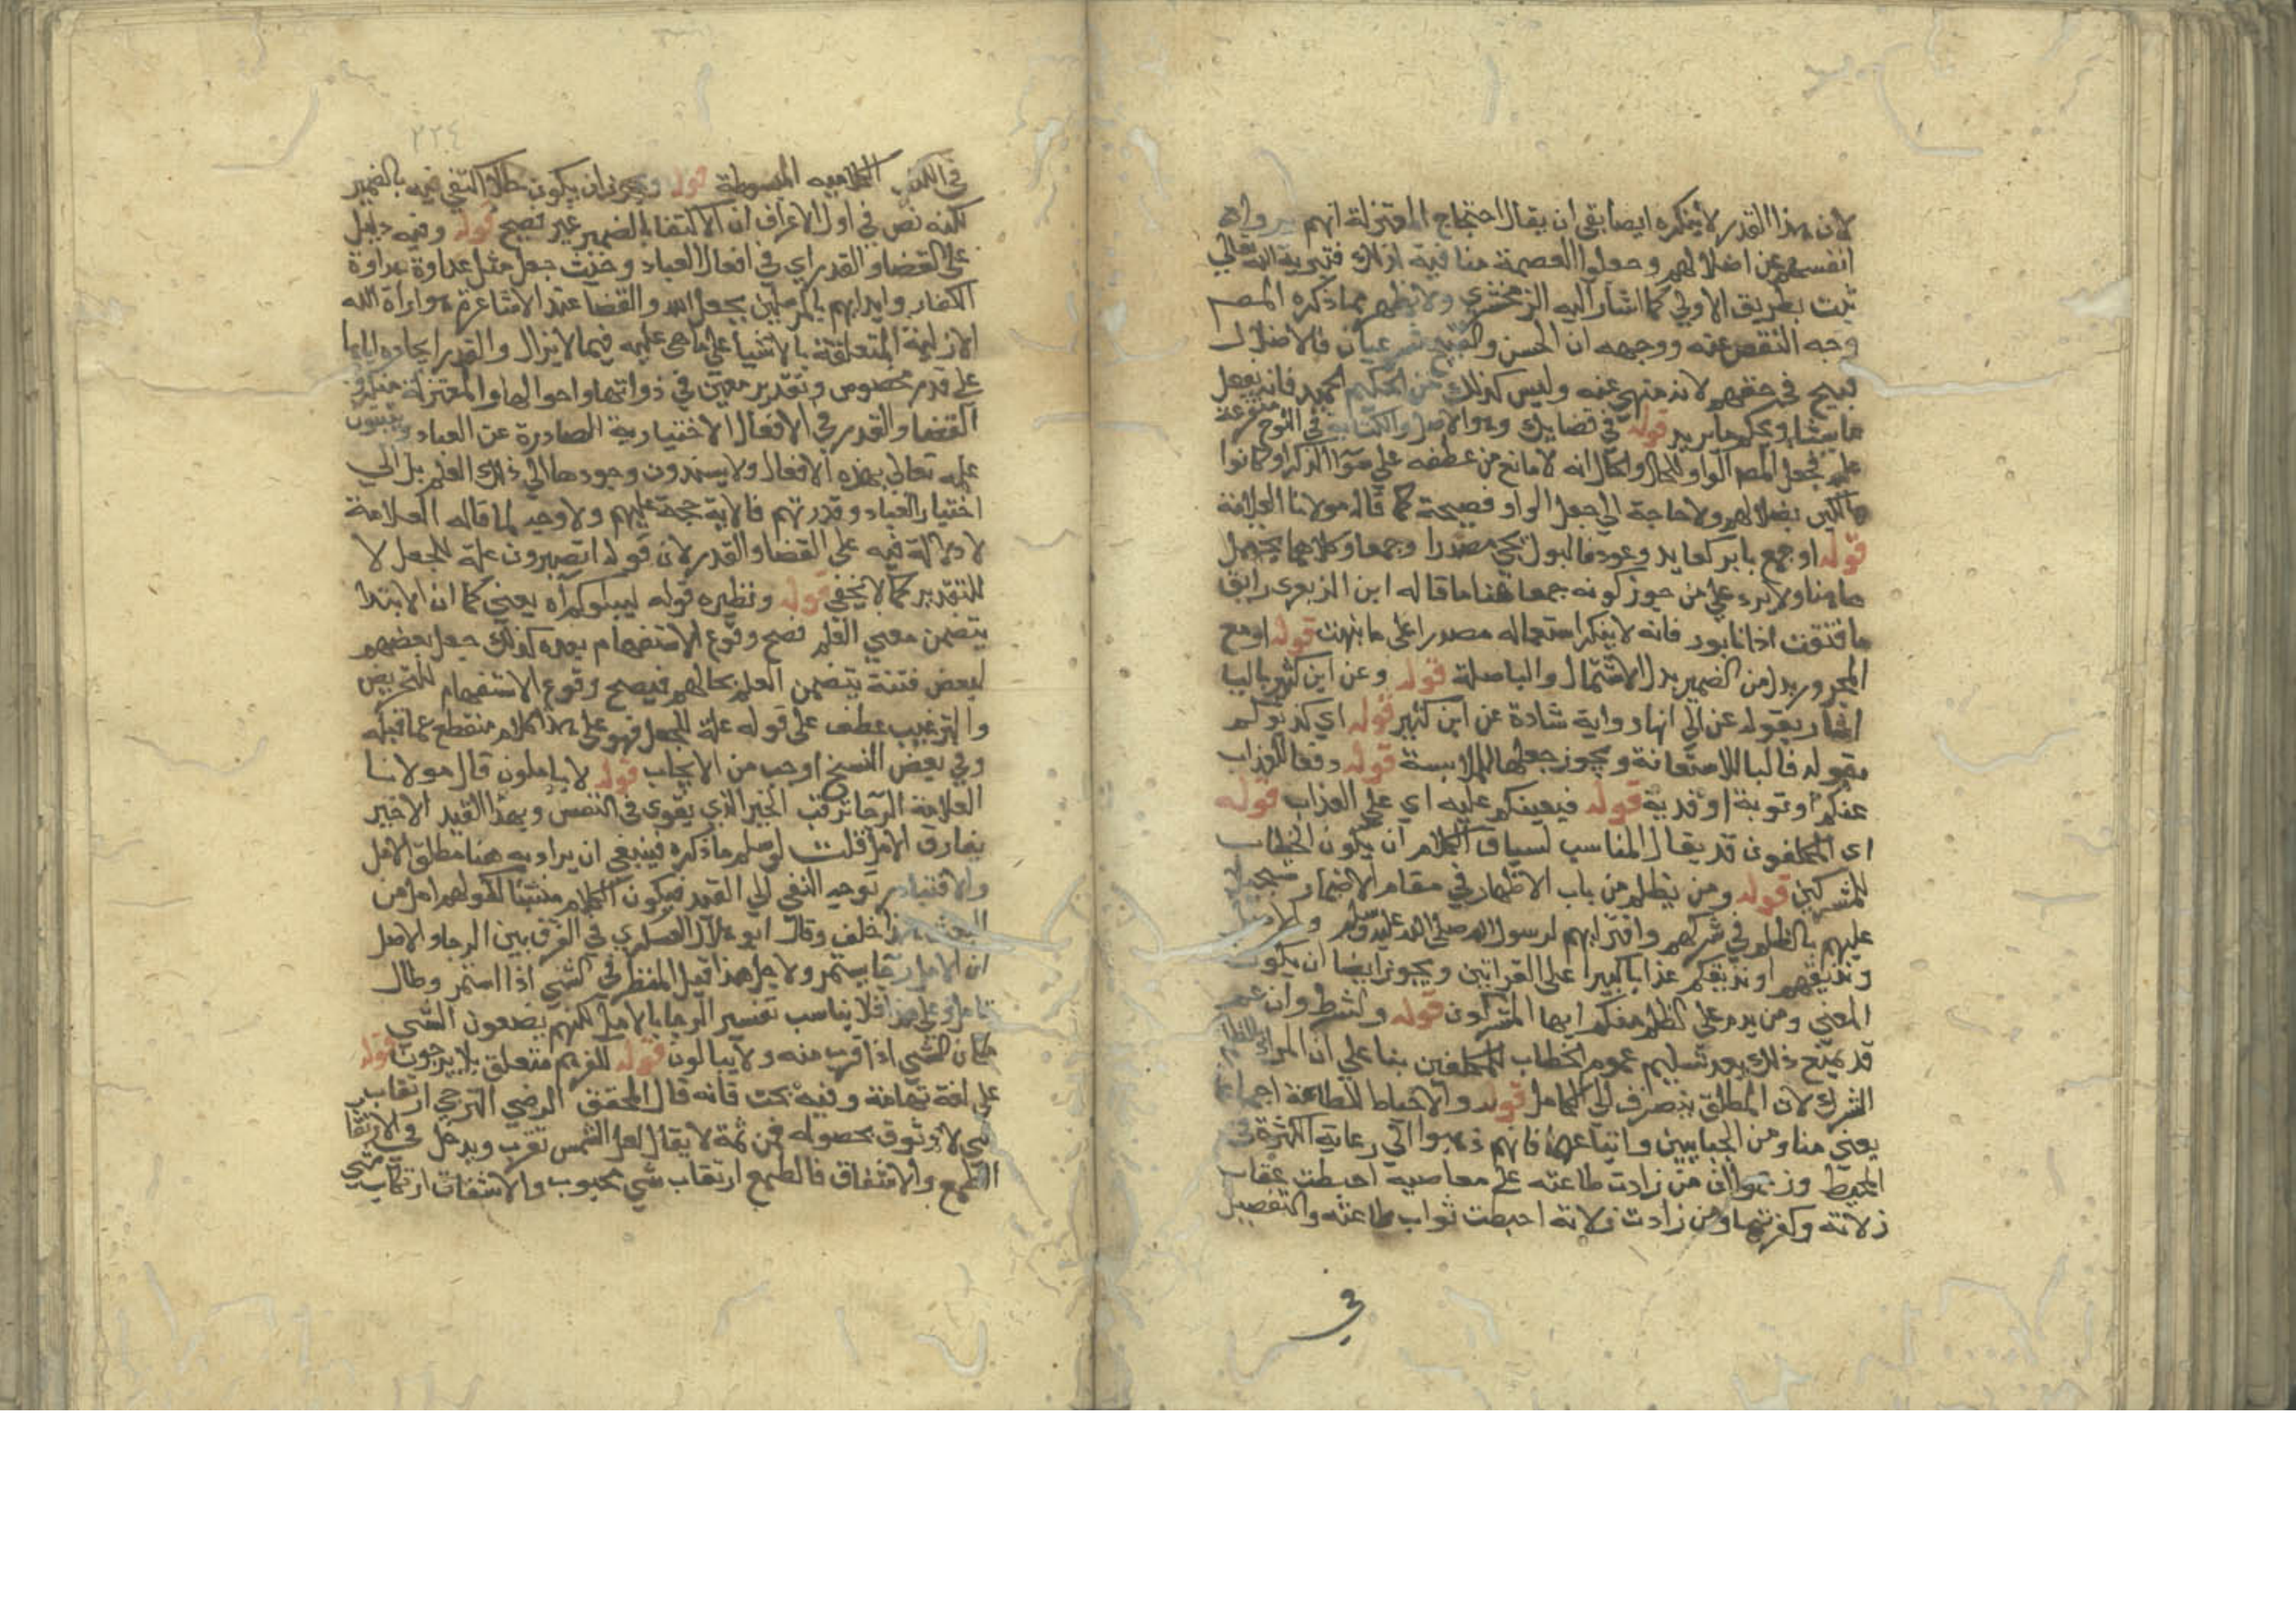 لان هذا القدر لا ينكره ايضا بقي ان يقال احتجاج المعتزلة انهم
انفسهم عن اضلالهم وجعلوا العصمة منافية لذلك فتبرية الله تعالى
ثبت بطريق الاولى كما اشار اليه الزمخشري ولا يظهر مما ذكره المصـ
وجه التقصي عنه ووجهه ان الحسن والقبيح شرعيان فالاضلال
قبيح في حقهم لانه منهي عنه وليس كذلك من الحكيم الحميد فانه يفعل
ما يشا ويحكم ما يريد قوله في قضايك وهو الاصل والكتابة في اللوح متفرعة
عليه فجعل المصـ الواو للحال والحال انه لا مانع من عطفه على نسوا الذكر او كانوا
هالكين بضلالهم ولا حاجة الى جعل الواو فصيحة كما قاله مولانا العلامة
قوله او جمع باير كعايد وعوذ فالبول يجي مصدرا وجمعا وكلاهما يحتمل
هاهنا ولا يرد على من جوز كونه جمعا هنا ما قاله ابن الزبعرى راتق
ما فتقت اذ انا بور فانه لا ينكر استعماله مصدرا على ما ينهت قوله او مع
المجرور بدل من الضمير بدل الاشتمال والبا صلة قوله وعن ابن كثير باليا
اشار بقوله عن الى انها رواية شاذة عن ابن كثير قوله اي كذبوكم
بقوله فالبا للاستعانة ويجوز جعلها للملابسة قوله دفعا للعذاب
عنكم او توبة او فدية قوله فيعينكم عليه اي على العذاب قوله
اي المكلفون قد يقال المناسب لسياق الكلام ان يكون الخطاب
للمشركين قوله ومن يظلم من باب الاظهار في مقام الاضمار
عليهم بالظلم في شركهم وافترايهم لرسول الله صلى الله عليه وسلم
ونذيقهم او نذيقكم عذابا كبيرا على القراتين ويجوز ايضا ان يكون
المعنى ومن يدم على الظلم منكم ايها المشركون قوله والشرط وان عم
قد يمنع ذلك بعد تسليم عموم الخطاب للمكلفين بنا على ان المراد
الشرك لان المطلق ينصرف الى الكامل قوله والاحباط للطاعة اجماعا
يعني منا ومن الجبايين واتباعهما فانهم ذهبوا الى رعاية الكثرة في
المحبط وزعموا ان من زادت طاعته على معاصيه احبطت عقاب
زلاته وكفرتها ومن زادت زلاته احبطت ثواب طاعته والتفصيل
في
٢٢٤
في الكتب الكلامية المبسوطة قوله ويجوز ان يكون حالا اكتفي فيه بالضمير
لكنه نص في اول الاعراف ان الاكتفا بالضمير غير فصيح قوله وفيه دليل
على القضا والقدر اي في افعال العباد وخبث جعل مثل عداوة عداوة
الكفار وايذايهم للمرسلين بجعل الله والقضا عند الاشاعرة هو ارادة الله
الازلية المتعلقة بالاشيا على ما هي عليه فيما لا يزال والقدر ايجاده اياها
على قدر مخصوص وتقدير معين في ذواتها واحوالها والمعتزلة منكرو
القضا والقدر في الافعال الاختيارية الصادرة عن العباد ويثبتون
علمه تعالى بهذه الافعال ولا يسندون وجودها الى ذلك العلم بل الى
اختيار العباد وقدرتهم فالاية حجة عليهم ولا وجه لما قاله العلامة
لا دلالة فيه على القضا والقدر لان قوله اتصبرون علة للجعل لا
للتقدير كما لا يخفى قوله ونظيره قوله ليبلوكم اه يعني كما ان الابتلا
يتضمن معنى العلم فصح وقوع الاستفهام بعده كذلك جعل بعضهم
لبعض فتنة يتضمن العلم بحالهم فيصح وقوع الاستفهام للتحريض
والترغيب عطف على قوله علة للجعل فهو على هذا كلام منقطع عما قبله
وفي بعض النسخ اوجب من الايجاب قوله لا ياملون قال مولانا
العلامة الرجا ترقب الخير الذي يقوى في النفس وبهذا القيد الاخير
يفارق الامل قلت لو سلم ما ذكره فينبغي ان يراد به هنا مطلق الامل
والا فتبادر توجه النفي الى القيد فيكون الكلام مثبتا لقولهم امل من
البعث هذا خلف وقال ابو هلال العسكري في الفرق بين الرجا والامل
ان الامل رجا يستمر ولاجل هذا قيل للنظر في الشي اذا استمر وطال
تامل وعلى هذا فلا يناسب تفسير الرجا بالامل لكنهم يضعون الشي
مكان الشي اذا قرب منه ولا يبالون قوله للفرم متعلق بلا يرجون قوله
على لغة تهامة وفيه بحث فانه قال المحقق الرضي الترجي ارتقاب
شي لا وثوق بحصوله فمن ثمة لا يقال لعل الشمس تغرب ويدخل في الارتقا
الطمع والاشفاق فالطمع ارتقاب شي محبوب والاشفاق ارتقاب شي